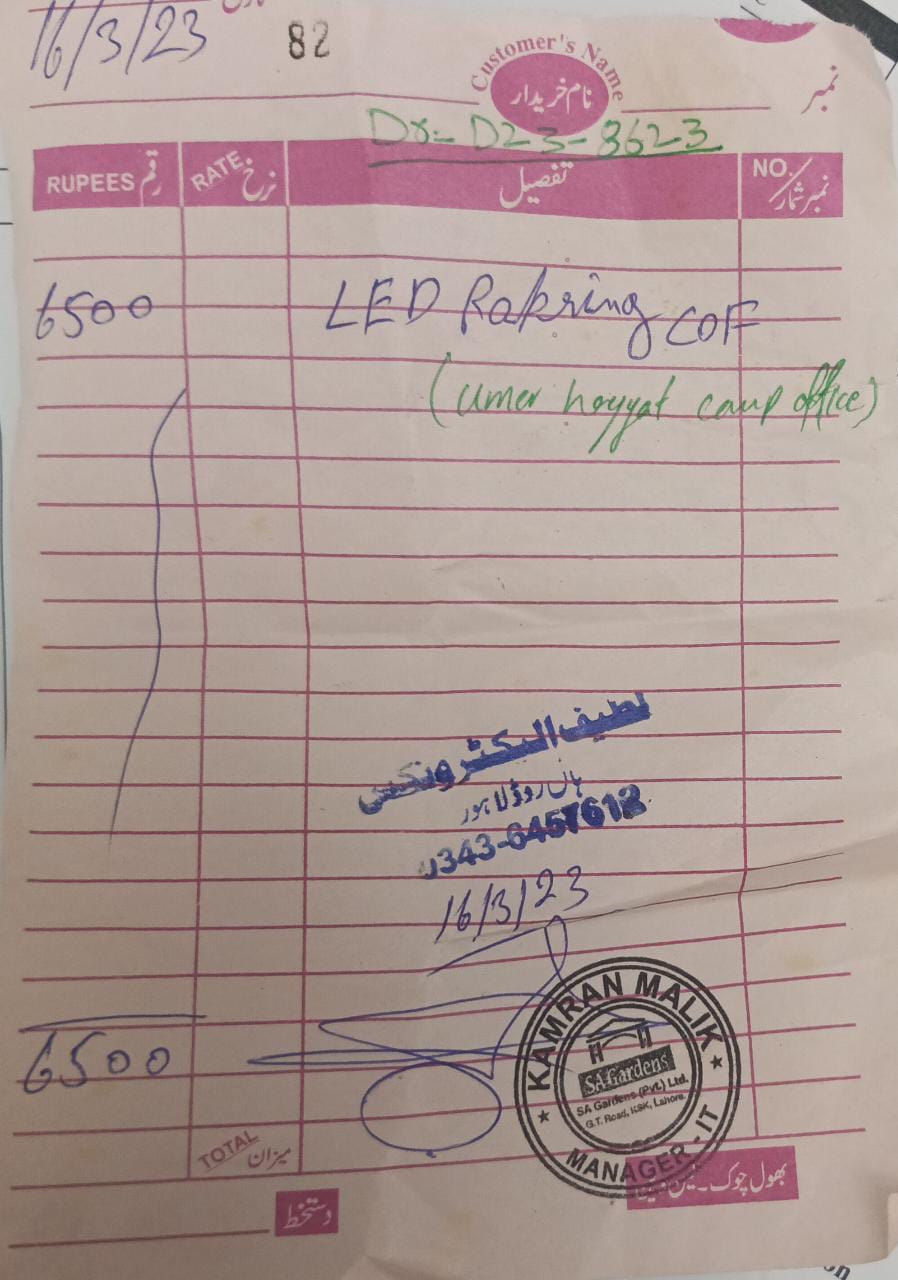 16/3/23 82
Customer's Name
نام خریدار
نمبر
Dr:- D23-8623
RUPEES رقم RATE نرخ تفصیل NO. نمبر شمار
6500 LED Rapring COF
(Umer hayyat camp office)
لطیف الیکٹرونکس
ہال روڈ لاہور
0343-6457612
16/3/23
KAMRAN MALIK
SA Gardens
SA Gardens (Pvt.) Ltd.
G.T. Road, KSK, Lahore.
MANAGER - IT
6500
TOTAL میزان
بھول چوک۔لین دین
دستخط